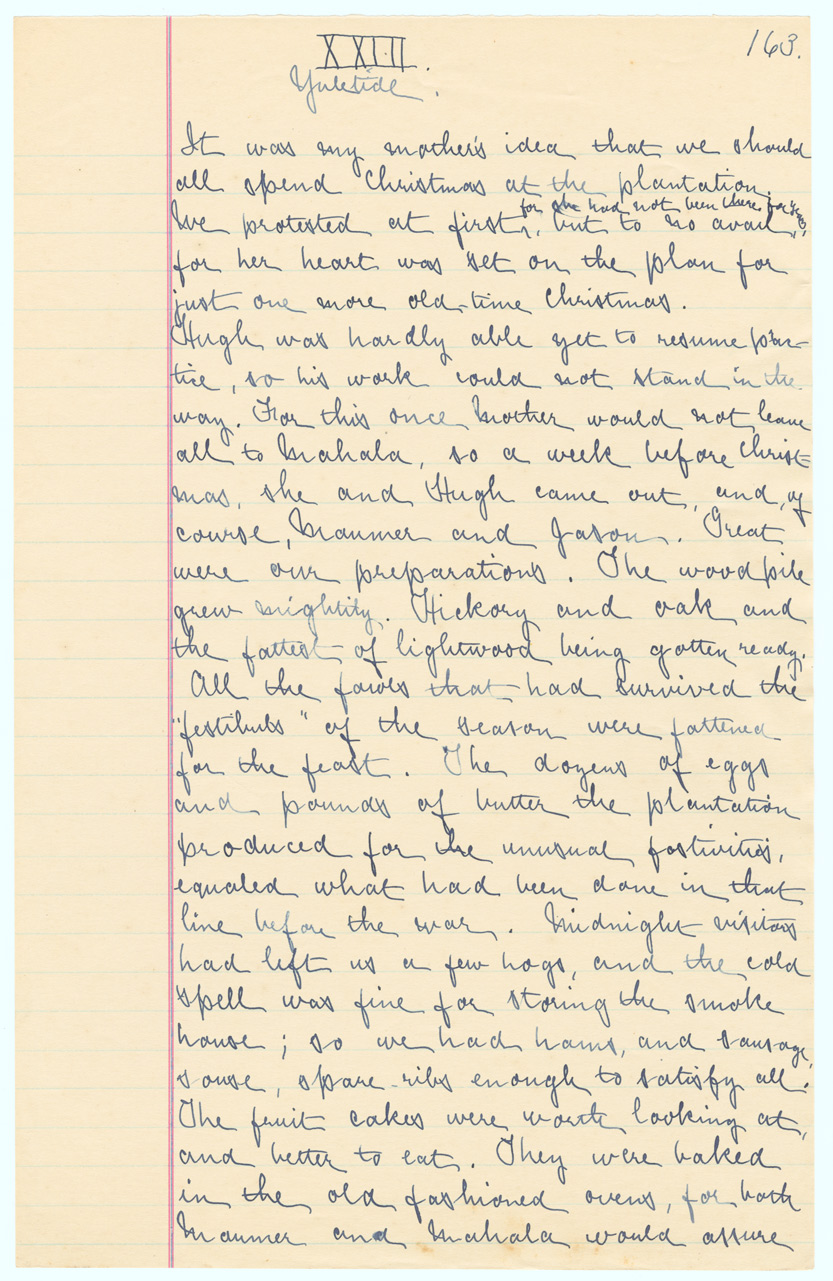 163.
XXIII.
Yuletide.
It was my mother's idea that we should
all spend Christmas at the plantation.
for she had not been there for years,
We protested at first, but to no avail,
for her heart was set on the plan for
just one more old-time Christmas.
Hugh was hardly able yet to resume prac-
tice, so his work could not stand in the
way. For this once Mother would not leave
all to Mahala, so a week before Christ-
mas, she and Hugh came out, and, of
course, Maumer and Jason. Great
were our preparations. The woodpile
grew mightily. Hickory and oak and
the fattest of lightwood being gotten ready.
All the fowls that had survived the
"festibuls" of the season were fattened
for the feast. The dozens of eggs
and pounds of butter the plantation
produced for the unusual festivities,
equaled what had been done in that
line before the war. Midnight visitors
had left us a few hogs, and the cold
spell was fine for storing the smoke
house; so we had hams, and sausage,
souse, spare-ribs enough to satisfy all.
The fruit cakes were worth looking at,
and better to eat. They were baked
in the old fashioned ovens, for both
Maumer and Mahala would assure